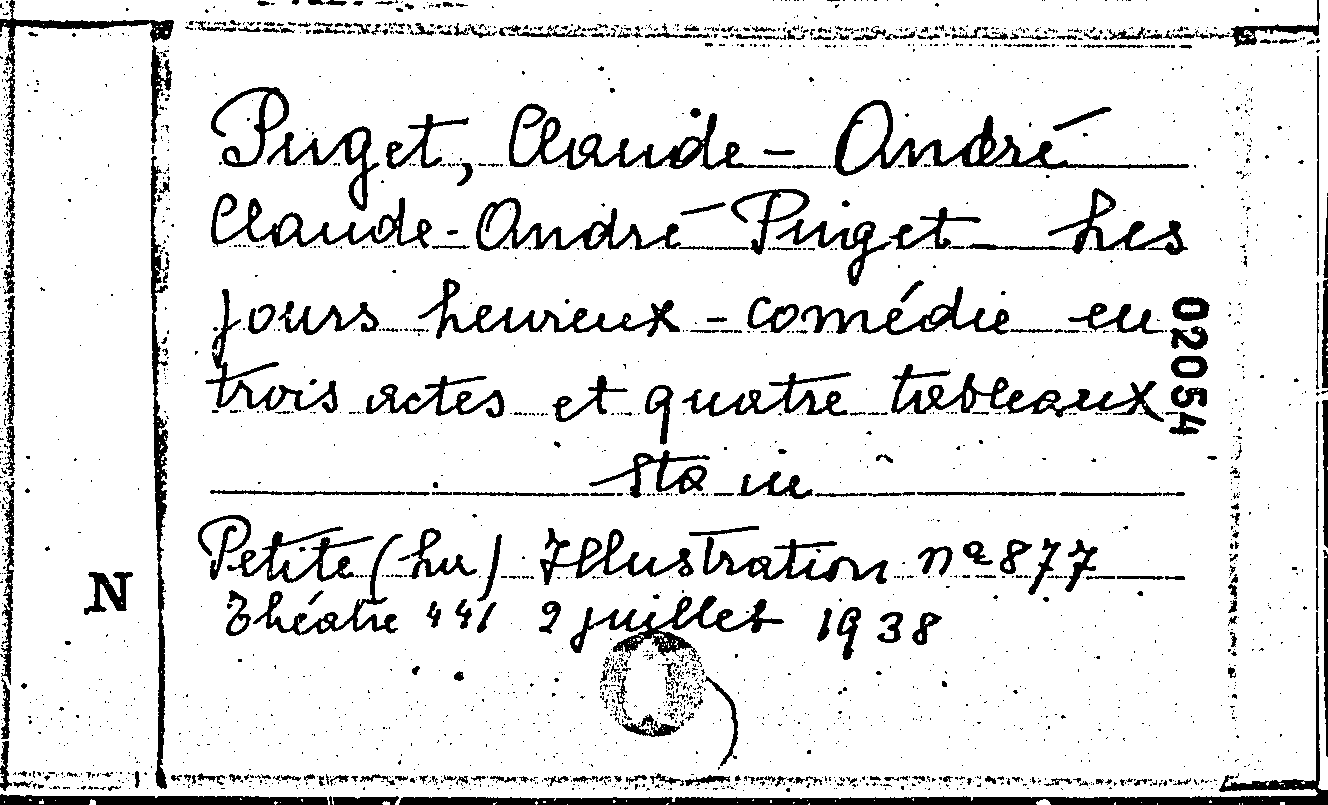 Puget, Claude-André
Claude-André Puget - Les
jours heureux - comédie en
trois actes et quatre tableaux
Sta in
Petite (La) Illustration nº 877
Théatre 441 2 juillet 1938
N
02054